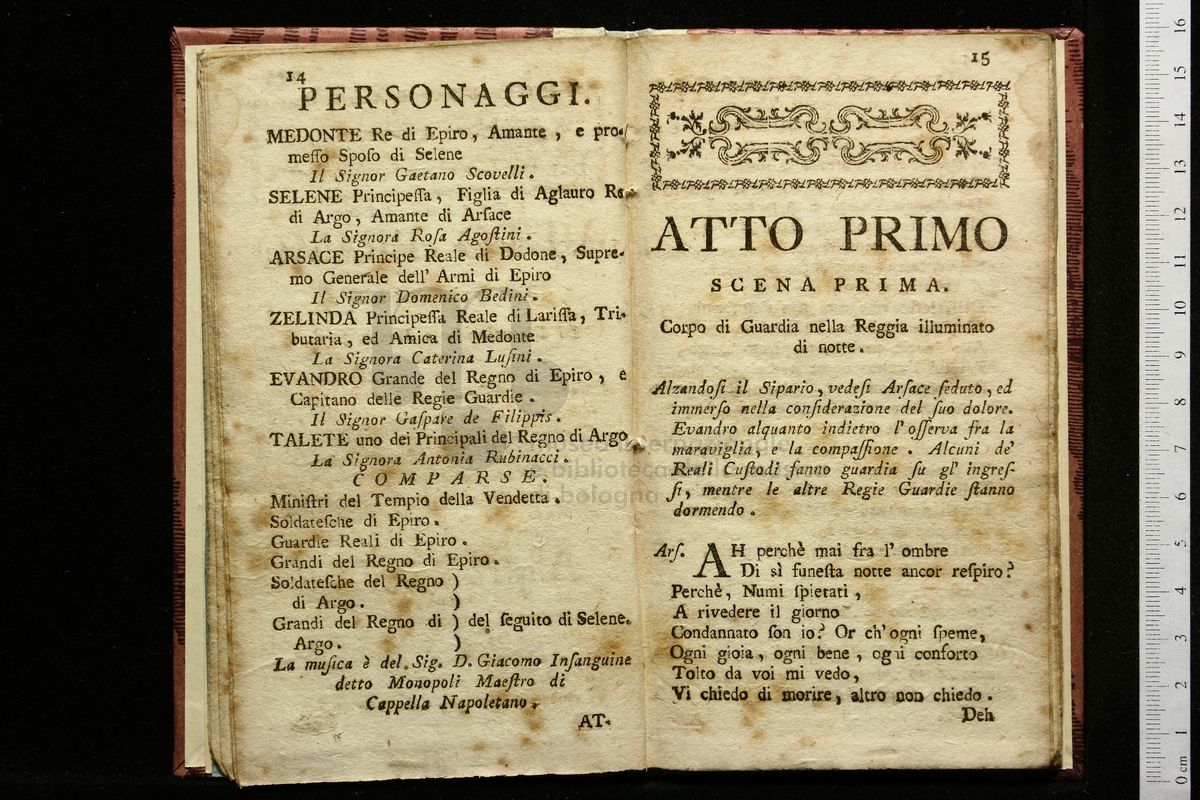 14
PERSONAGGI.
MEDONTE Re di Epiro, Amante, e pro-
meſſo Spoſo di Selene
Il Signor Gaetano Scovelli.
SELENE Principeſſa, Figlia di Aglauro Re
di Argo, Amante di Arſace
La Signora Roſa Agoſtini.
ARSACE Principe Reale di Dodone, Supre-
mo Generale dell' Armi di Epiro
Il Signor Domenico Bedini.
ZELINDA Principeſſa Reale di Lariſſa, Tri-
butaria, ed Amica di Medonte
La Signora Caterina Luſini.
EVANDRO Grande del Regno di Epiro, e
Capitano delle Regie Guardie.
Il Signor Gaſpare de Filippis.
TALETE uno dei Principali del Regno di Argo
La Signora Antonia Rubinacci.
COMPARSE.
Miniſtri del Tempio della Vendetta.
Soldateſche di Epiro.
Guardie Reali di Epiro.
Grandi del Regno di Epiro.
Soldateſche del Regno )
di Argo. )
Grandi del Regno di ) del ſeguito di Selene.
Argo. )
La muſica è del Sig. D. Giacomo Inſanguine
detto Monopoli Maeſtro di
Cappella Napoletano.
AT-
15
ATTO PRIMO
SCENA PRIMA.
Corpo di Guardia nella Reggia illuminato
di notte.
Alzandoſi il Sipario, vedeſi Arſace ſeduto, ed
immerſo nella conſiderazione del ſuo dolore.
Evandro alquanto indietro l'oſſerva fra la
maraviglia, e la compaſſione. Alcuni de'
Reali Cuſtodi fanno guardia ſu gl' ingreſ-
ſi, mentre le altre Regie Guardie ſtanno
dormendo.
Arſ. AH perchè mai fra l' ombre
Di sì funeſta notte ancor reſpiro?
Perchè, Numi ſpietati,
A rivedere il giorno
Condannato ſon io? Or ch'ogni ſpeme,
Ogni gioia, ogni bene, ogni conforto
Tolto da voi mi vedo,
Vi chiedo di morire, altro non chiedo.
Deh
0 cm 1 2 3 4 5 6 7 8 9 10 11 12 13 14 15 16